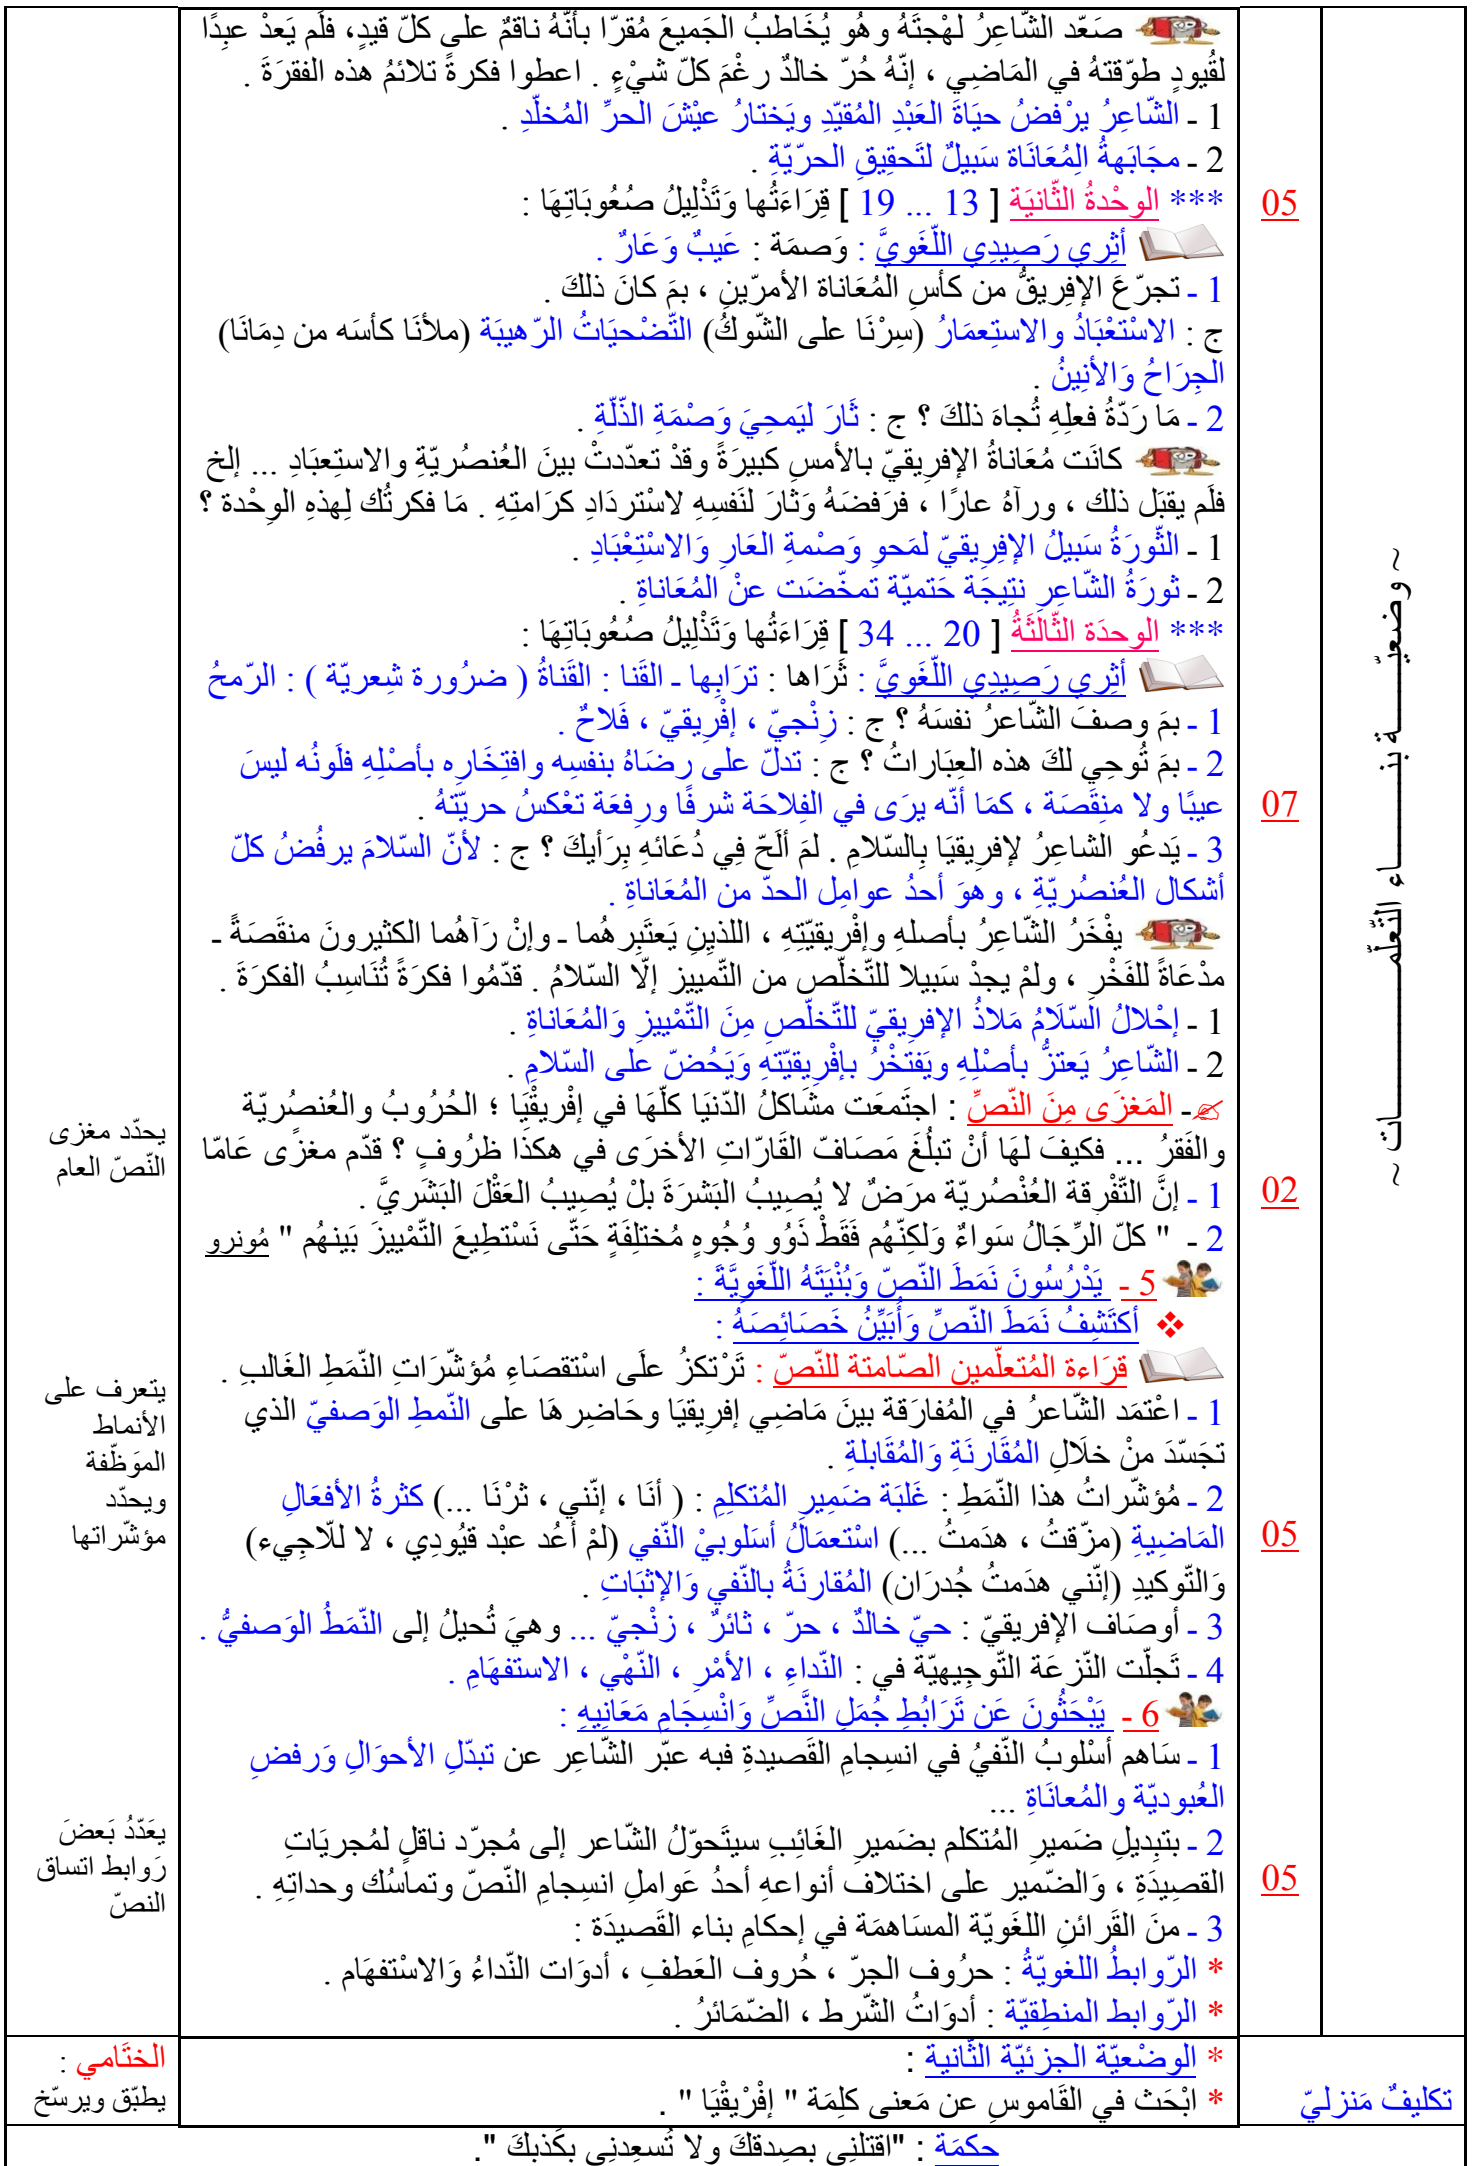 صَعّد الشّاعِرُ لهْجتَهُ وهُو يُخَاطبُ الجَميعَ مُقرّا بأنّهُ ناقمٌ على كلّ قيدٍ، فلَم يَعدْ عبدًا
لقُيودٍ طوّقتهُ في المَاضِي ، إنّهُ حُرّ خالدٌ رغْمَ كلّ شيْءٍ . اعطوا فكرةً تلائمُ هذه الفقرَةَ .
1 ـ الشّاعِرُ يرْفضُ حيَاةَ العَبْدِ المُقيّدِ ويَختارُ عيْشَ الحرِّ المُخلّدِ .
2 ـ مجَابَهةُ المُعَانَاة سَبيلٌ لتَحقِيقِ الحرّيّةِ .
*** الوحْدةُ الثّانيَة [ 13 ... 19 ] قِرَاءَتُها وَتَذْلِيلُ صُعُوبَاتِهَا :
05
أثِري رَصِيدِي اللّغَويَّ : وَصمَة : عَيبٌ وَعَارٌ .
1 ـ تجرّعَ الإفِريقُّ من كأسِ المُعَاناة الأمرّينِ ، بمَ كانَ ذلكَ .
ج : الاسْتعْبَادُ والاستِعمَارُ (سِرْنَا على الشّوكُ) التّضْحيَاتُ الرّهيبَة (ملأنَا كأسَه من دِمَانَا)
الجِرَاحُ وَالأنِينُ .
2 ـ مَا رَدّةُ فعلِهِ تُجاهَ ذلكَ ؟ ج : ثَارَ ليَمحِيَ وَصْمَةِ الذّلّةِ .
كانَت مُعَاناةُ الإفرِيقيّ بالأمسِ كبيرَةً وقدْ تعدّدتْ بينَ العُنصُريّةِ والاستِعبَادِ ... إلخ
فلَم يقبَل ذلك ، ورآهُ عارًا ، فرَفضَهُ وَثارَ لنَفسِهِ لاسْتردَادِ كرَامتِهِ . مَا فكرتُك لِهذهِ الوحْدة ؟
1 ـ الثّورَةُ سَبيلُ الإفِريقيّ لمَحوِ وَصْمةِ العَارِ وَالاسْتِعْبَادِ .
2 ـ ثورَةُ الشّاعِرِ نتِيجَة حَتميّة تمخّضَت عنْ المُعَاناةِ .
*** الوحدَة الثّالثَةُ [ 20 ... 34 ] قِرَاءَتُها وَتَذْلِيلُ صُعُوبَاتِهَا :
أثِري رَصِيدِي اللّغَويَّ : ثَرَاها : ترَابِها ـ القَنا : القَناةُ ( ضرُورة شِعريّة ) : الرّمحُ
1 ـ بمَ وصفَ الشّاعرُ نفسَهُ ؟ ج : زنْجيّ ، إفْرِيقيّ ، فَلاحٌ .
2 ـ بمَ تُوحِي لكَ هذه العِبَاراتُ ؟ ج : تدلّ على رضَاهُ بنفسِه وافتِخَارِه بأصْلِهِ فلَونُه ليسَ
عيبًا ولا منقَصَة ، كمَا أنّه يرَى في الفِلاحَة شرفًا ورِفعَة تعْكسُ حريّتهُ .
07
3 ـ يَدعُو الشاعِرُ لإفرِيقيَا بِالسّلامِ . لمَ ألَحّ فِي دُعَائهِ بِرَأيكَ ؟ ج : لأنّ السّلامَ يرفُضُ كلّ
أشكال العُنصُريّةِ ، وهوَ أحدُ عوامِل الحدّ من المُعَاناةِ .
يفْخَرُ الشّاعِرُ بأصلهِ وإفْريقيّتِهِ ، اللذيِنِ يَعتَبِرهُما ـ وإنْ رَآهُما الكثيرونَ منقَصَةً ـ
مدْعَاةً للفَخْرِ ، ولمْ يجدْ سَبيلا للتّخلّص من التّمييز إلّا السّلامُ . قدّمُوا فكرَةً تُنَاسِبُ الفكرَةَ .
1 ـ إحْلالُ السّلَامُ مَلاذُ الإفرِيقيّ للتّخلّصِ مِنَ التّمْييزِ وَالمُعَاناةِ .
2 ـ الشّاعِرُ يَعتزُّ بأصْلِهِ ويَفتخْرُ بإفْرِيقيّتهِ وَيَحُضّ على السّلامِ .
ـ المَغزَى مِنَ النّصِّ : اجتَمعَت مشَاكلُ الدّنيَا كلّهَا في إفْريقْيَا ؛ الحُرُوبُ والعُنصُريّة
والفَقرُ ... فكيفَ لهَا أنْ تبلُغَ مَصَافّ القَارّاتِ الأخرَى في هكذَا ظرُوفٍ ؟ قدّم مغزًى عَامّا
يحدّد مغزى
النّصّ العام
1 ـ إنَّ التّفْرِقة العُنْصُريّة مرَضٌ لا يُصِيبُ البَشرَةَ بلْ يُصِيبُ العَقْلَ البَشَريَّ .
02
2 ـ " كلّ الرِّجَالُ سَواءٌ وَلكِنّهُم فَقَطْ ذَوُو وُجُوهٍ مُختلِفَةٍ حَتّى نَسْتطِيعَ التّمْييزَ بَينهُم " مُونرو
5 ـ يَدْرُسُونَ نَمَطَ النّصّ وَبُنْيَتَهُ اللّغَويَّةَ :
أكتَشِفُ نَمَطَ النّصِّ وَأُبَيِّنُ خَصَائِصَهُ :
قرَاءة المُتعلّمين الصّامتة للنّصّ : تَرْتكزُ علَى اسْتقصَاءِ مُؤشّرَاتِ النّمَطِ الغَالبِ .
1 ـ اعْتمَد الشّاعرُ في المُفارَقة بينَ مَاضِي إفرِيقيَا وحَاضِرهَا على النّمطِ الوَصفيّ الذي
تجَسّدَ منْ خلَالِ المُقَارنَةِ وَالمُقَابلةِ .
2 ـ مُؤشّراتُ هذا النّمَطِ : غَلبَة ضَميرِ المُتكلِمِ : ( أنَا ، إنّني ، ثرْنَا ...) كثرةُ الأفعَالِ
المَاضِيةِ (مزّقتُ ، هدَمتُ ...) اسْتعمَالُ أسَلوبيْ النّفي (لمْ أعُد عبْد قيُودِي ، لا للّاجِيء)
وَالتّوكيدِ (إنّني هدَمتُ جُدرَان) المُقارنَةُ بالنّفي وَالإثبَاتِ .
يتعرف على
الأنماط
الموَظّفة
ويحدّد
مؤشّراتها
05
3 ـ أوصَاف الإفريقيّ : حيّ خالدٌ ، حرّ ، ثائرٌ ، زنْجيّ ... وهيَ تُحيلُ إلى النّمَطُ الوَصفيُّ .
4 ـ تَجلّت النّزعَة التّوجِيهيّة في : النّداءِ ، الأمْرِ ، النّهْي ، الاستفهَامِ .
6 ـ يَبْحَثُونَ عَن تَرَابُطِ جُمَلِ النَّصِّ وَانْسِجَامِ مَعَانِيهِ :
1 ـ سَاهم أسْلوبُ النّفيُ في انسِجامِ القَصيدةِ فبه عبّر الشّاعِر عن تبدّلِ الأحوَالِ وَرفضِ
العُبوديّة والمُعانَاةِ ...
2 ـ بتبِديلِ ضَميرِ المُتكلم بضَميرِ الغَائِبِ سيتَحوّلُ الشّاعر إلى مُجرّد ناقلٍ لمُجريَاتِ
القصِيدَةِ ، وَالضّمير على اختلاف أنواعهِ أحدُ عَواملِ انسِجامِ النّصّ وتماسُك وحداتِهِ .
يعَدّدُ بَعضَ
رَوابط اتساق
النصّ
05
3 ـ منَ القَرائنِ اللغَويّة المسَاهمَة في إحكامِ بناء القَصيدَة :
* الرّوابطُ اللغويّةُ : حرُوف الجرّ ، حُروف العَطفِ ، أدوَات النّداءُ وَالاسْتفهَام .
* الرّوابط المنطِقيّة : أدوَاتُ الشّرط ، الضّمَائرُ .
~ وضعيّــــة بنــــــاء التّعلّمــــــــات ~
تكليفٌ مَنزليّ
* الوضْعيّة الجزئيّة الثّانية :
* ابْحَث في القَاموسِ عن مَعنى كلِمَة " إفْرْيقْيَا " .
الختَامي :
يطبّق ويرسّخ
حكمَة : "اقتلنِي بصِدقكَ ولا تُسعِدنِي بكَذبكَ ".